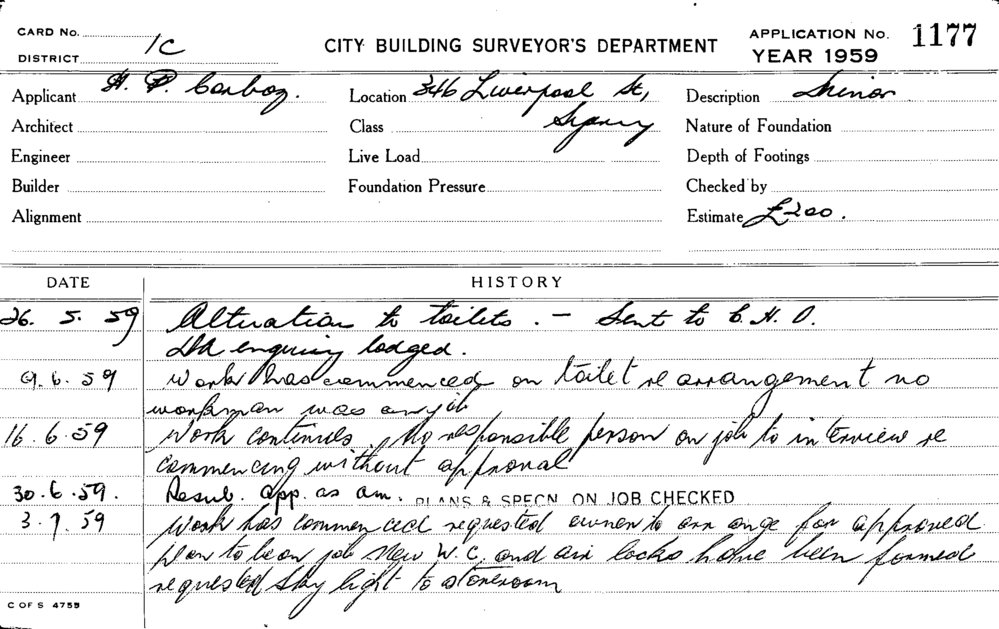 CARD No.
DISTRICT 1C
CITY BUILDING SURVEYOR'S DEPARTMENT
APPLICATION No. 1177
YEAR 1959
Applicant H. P. Location 346 Liverpool St, Description Minor
Architect Class Sydney Nature of Foundation
Engineer Live Load Depth of Footings
Builder Foundation Pressure Checked by
Alignment Estimate £200.
DATE HISTORY
26. 5. 59 Alteration to toilets. - Sent to C.H.O.
enquiry lodged.
9. 6. 59 Work has commenced on toilet re arrangement no
workman was on job
16. 6. 59 Work continues. No responsible person on job to interview re
commencing without approval
30. 6. 59. Resub. app. as am. PLANS & SPECN ON JOB CHECKED
3. 7. 59 Work has commenced requested owner to arrange for approved
plan to be on job New W.C. and air locks have been formed
requested sky light to storeroom
C OF S 4759